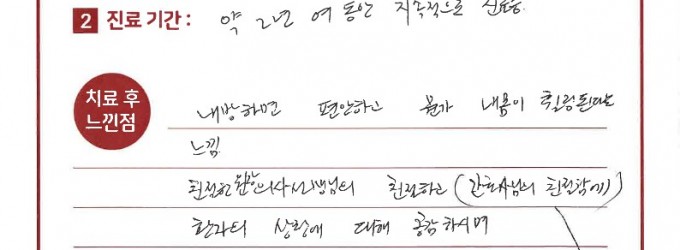 2 진료 기간 : 약 2년 여 동안 지속적으로
치료 후
느낀점
내방하면 편안하고 뭔가 내몸이 힐링된다는
느낌
친절한 원장의사선생님의 친절하고 (간호사님의 친절함에)
환자의 상황에 대해 공감하시며